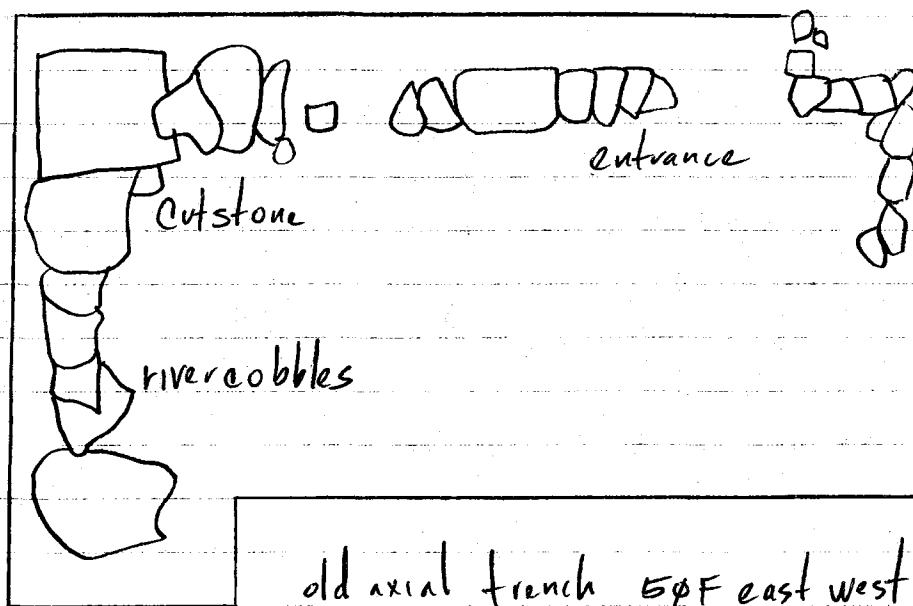 entrance
Cutstone
rivercobbles
old axial trench 50F east west